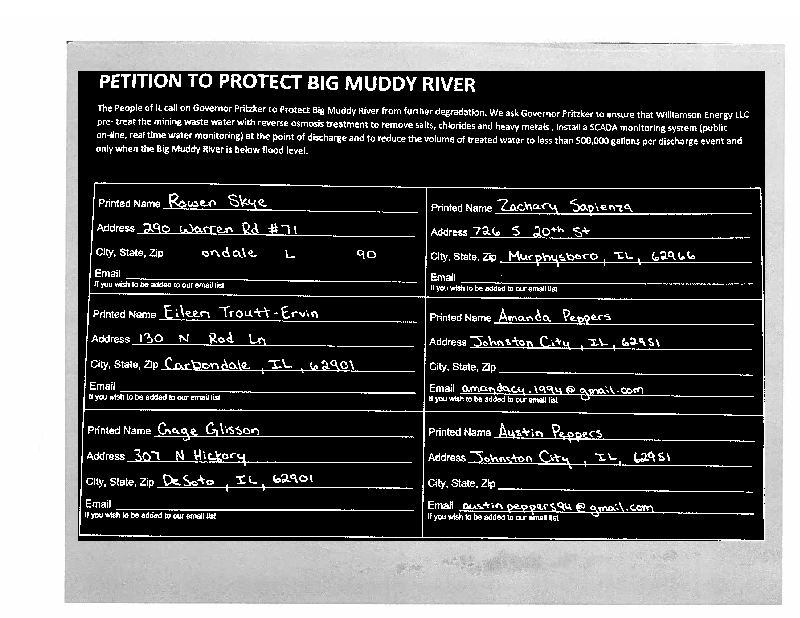 PETITION TO PROTECT BIG MUDDY RIVER
The People of IL call on Governor Pritzker to Protect Big Muddy River from further degradation. We ask Governor Pritzker to ensure that Williamson Energy LLC
pre- treat the mining waste water with reverse osmosis treatment to remove salts, chlorides and heavy metals, install a SCADA monitoring system (public
on-line, real time water monitoring) at the point of discharge and to reduce the volume of treated water to less than 500,000 gallons per discharge event and
only when the Big Muddy River is below flood level.
Printed Name Rowen Skye
Address 290 Warren Rd #71
City, State, Zip ondale L 90
Email
If you wish to be added to our email list
Printed Name Zachary Sapienza
Address 726 S 20th St
City, State, Zip Murphysboro, IL, 62966
Email
If you wish to be added to our email list
Printed Name Eileen Troutt-Ervin
Address 130 N Rod Ln
City, State, Zip Carbondale, IL, 62901
Email
If you wish to be added to our email list
Printed Name Amanda Peppers
Address Johnston City, IL, 62951
City, State, Zip
Email amandacy.1994@gmail.com
If you wish to be added to our email list
Printed Name Gage Glisson
Address 307 N Hickory
City, State, Zip DeSoto, IL, 62901
Email
If you wish to be added to our email list
Printed Name Austin Peppers
Address Johnston City, IL, 62951
City, State, Zip
Email austinpeppers94@gmail.com
If you wish to be added to our email list